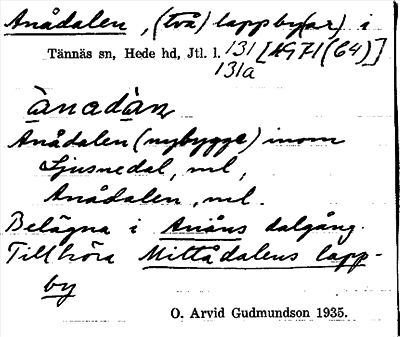 Anådalen, (två) lappby(ar) i
Tännäs sn, Hede hd, Jtl. l. 131 [A971(64)]
131a
ànadàn
Anådalen (nybygge) inom
Ljusnedal, ml,
Anådalen, ml.
Belägna i Anåns dalgång.
Tillhöra Mittådalens lapp-
by
O. Arvid Gudmundson 1935.